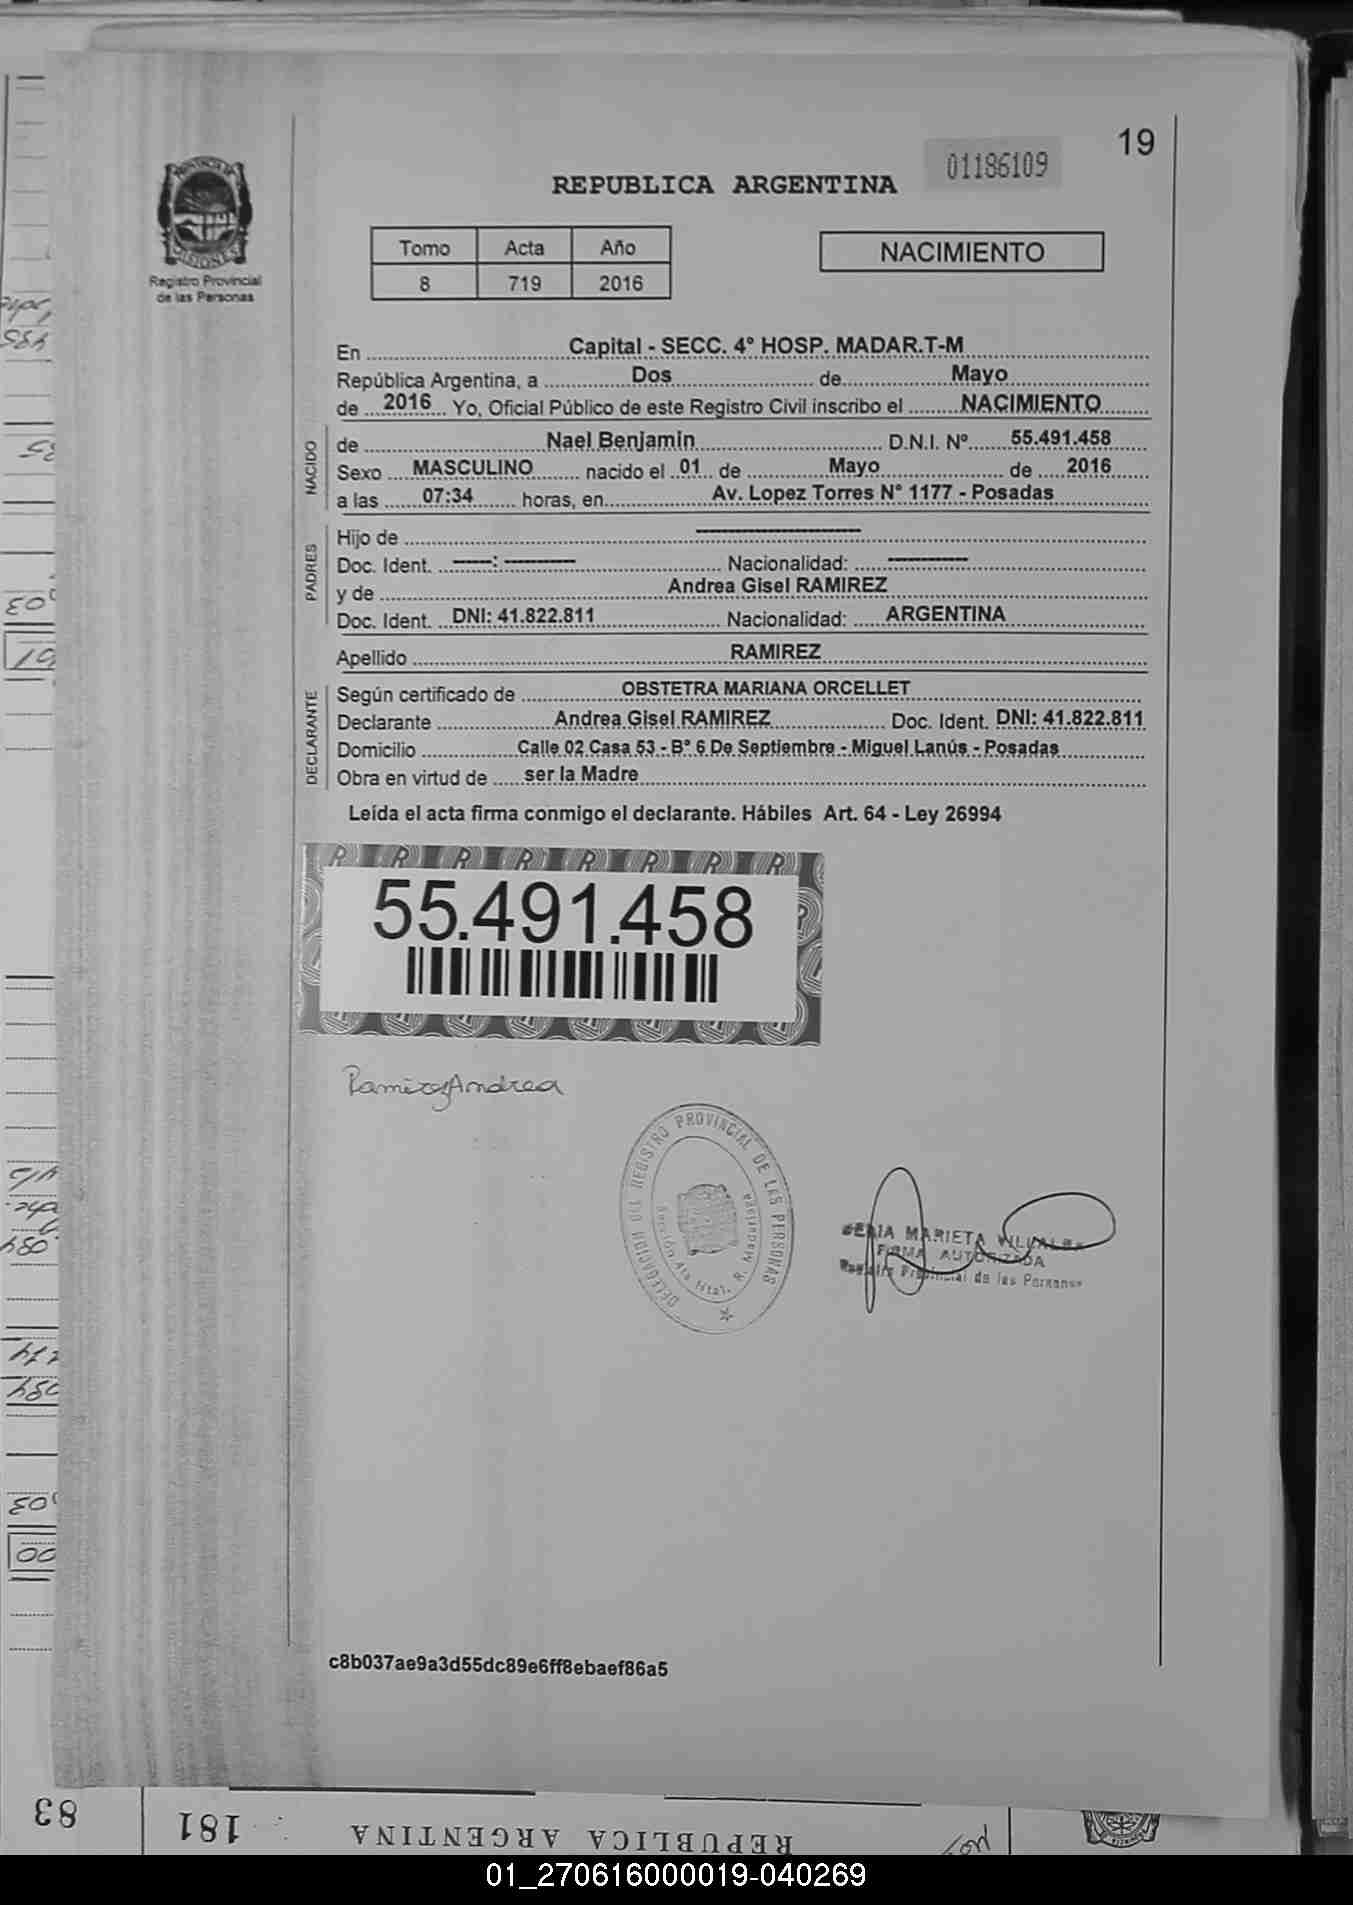 19
01186109
REPUBLICA ARGENTINA
PROVINCIA DE
MISIONES
Registro Provincial
de las Personas
Tomo Acta Año
8 719 2016
NACIMIENTO
En Capital - SECC. 4° HOSP. MADAR.T-M
República Argentina, a Dos de Mayo
de 2016 Yo, Oficial Público de este Registro Civil inscribo el NACIMIENTO
NACIDO
de Nael Benjamin D.N.I. Nº 55.491.458
Sexo MASCULINO nacido el 01 de Mayo de 2016
a las 07:34 horas, en Av. Lopez Torres N° 1177 - Posadas
PADRES
Hijo de ----------
Doc. Ident. ----: -------- Nacionalidad: ----------
y de Andrea Gisel RAMIREZ
Doc. Ident. DNI: 41.822.811 Nacionalidad: ARGENTINA
Apellido RAMIREZ
DECLARANTE
Según certificado de OBSTETRA MARIANA ORCELLET
Declarante Andrea Gisel RAMIREZ Doc. Ident. DNI: 41.822.811
Domicilio Calle 02 Casa 53 - B° 6 De Septiembre - Miguel Lanús - Posadas
Obra en virtud de ser la Madre
Leída el acta firma conmigo el declarante. Hábiles Art. 64 - Ley 26994
55.491.458
Ramirez Andrea
DELEGACION DEL REGISTRO PROVINCIAL DE LAS PERSONAS
Sección 4ta Htal. R. Madariaga
MARIETA VILLALBA
FIRMA AUTORIZADA
Registro Provincial de las Personas
c8b037ae9a3d55dc89e6ff8ebaef86a5
83
181
REPUBLICA ARGENTINA
01_270616000019-040269